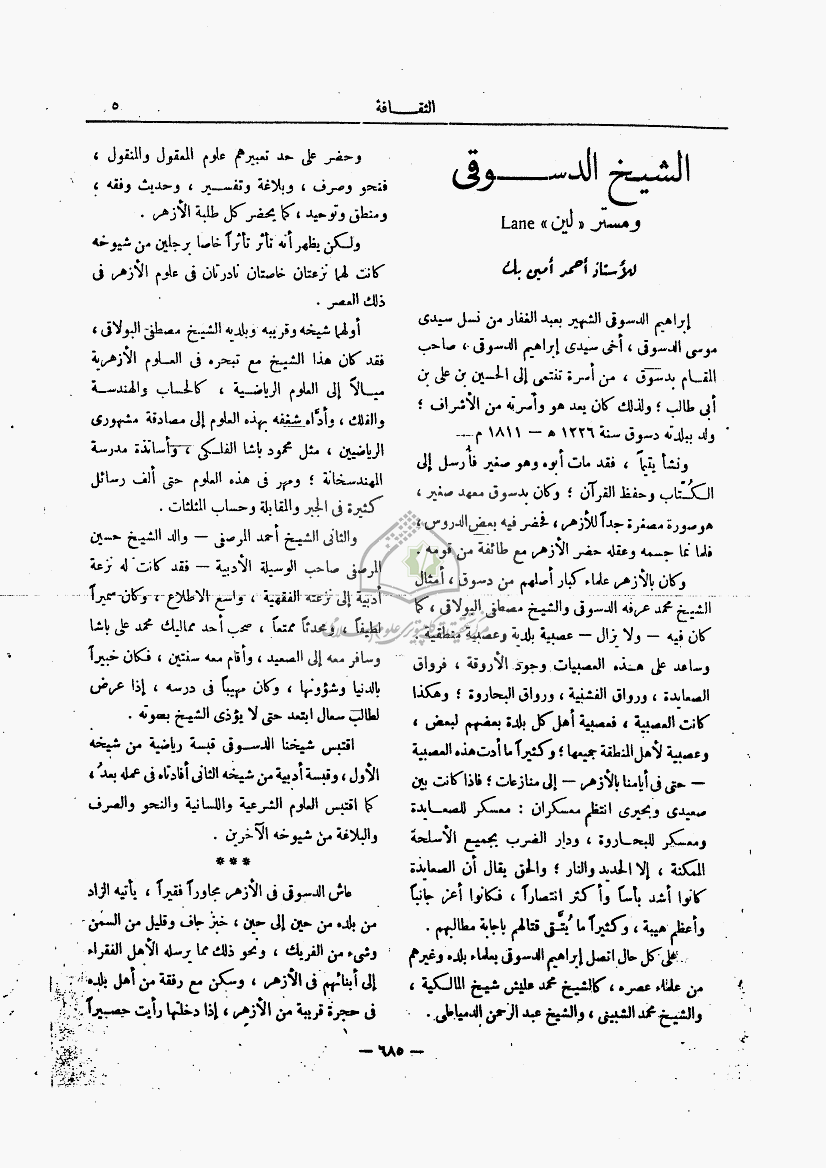 الثقـــافة
٥
الشيخ الدســـوقى
ومستر «لين» Lane
للأستاذ أحمد أمين بك
إبراهيم الدسوقى الشهير بعبد الغفار من نسل سيدى
موسى الدسوقى ، أخى سيدى إبراهيم الدسوقى ، صاحب
المقام بدسوق ، من أسرة تنتمى إلى الحسين بن على بن
أبى طالب ؛ ولذلك كان يعد هو وأسرته من الأشراف ؛
ولد ببلدته دسوق سنة ١٢٢٦ هـ — ١٨١١ م —
ونشأ يتيماً ، فقد مات أبوه وهو صغير فأرسل إلى
الكُتّاب وحفظ القرآن ؛ وكان بدسوق معهد صغير ،
هو صورة مصغرة جداً للأزهر ، فحضر فيه بعض الدروس ،
فلما نما جسمه وعقله حضر الأزهر مع طائفة من قومه .
وكان بالأزهر علماء كبار أصلهم من دسوق ، أمثال
الشيخ محمد عرفه الدسوقى والشيخ مصطفى البولاقى ، كما
كان فيه — ولا يزال — عصبية بلدية وعصبية منطقية .
وساعد على هـذه العصبيات وجود الأروقة ، فرواق
الصعايدة ، ورواق الفشنية ، ورواق البحاروة ؛ وهكذا
كانت العصبية ، فعصبية أهل كل بلدة بعضهم لبعض ،
وعصبية لأهل المنطقة جميعها ؛ وكثيراً ما أدت هذه العصبية
— حتى فى أيامنا بالأزهر — إلى منازعات ؛ فاذا كانت بين
صعيدى وبحيرى انتظم معسكران : معسكر للصعايدة
ومعسكر للبحاروة ، ودار الضرب بجميع الأسلحة
الممكنة ، إلا الحديد والنار ؛ والحق يقال أن الصعايدة
كانوا أشد بأساً وأكثر انتصاراً ، فكانوا أعز جانباً
وأعظم هيبة ، وكثيراً ما يُتَّقى قتالهم بإجابة مطالبهم .
على كل حال اتصل إبراهيم الدسوقى بعلماء بلده وغيرهم
من علماء عصره ، كالشيخ محمد عليش شيخ المالكية ،
والشيخ محمد الشبينى ، والشيخ عبد الرحمن الدمياطى .
وحضر على حد تعبيرهم علوم المعقول والمنقول ،
فنحو وصرف ، وبلاغة وتفسير ، وحديث وفقه ،
ومنطق وتوحيد ، كما يحضر كل طلبة الأزهر .
ولكن يظهر أنه تأثر تأثراً خاصا برجلين من شيوخه
كانت لهما نزعتان خاصتان نادرتان فى علوم الأزهر فى
ذلك العصر .
أولهما شيخه وقريبه وبلديه الشيخ مصطفى البولاقى ،
فقد كان هذا الشيخ مع تبحره فى العلوم الأزهرية
ميالاً إلى العلوم الرياضية ، كالحساب والهندسة
والفلك ، وأدَّاه شغفه بهذه العلوم إلى مصادقة مشهورى
الرياضيين ، مثل محمود باشا الفلكى ، وأساتذة مدرسة
المهندسخانة ؛ ومهر فى هذه العلوم حتى ألف رسائل
كثيرة فى الجبر والمقابلة وحساب المثلثات .
والثانى الشيخ أحمد المرصفى — والد الشيخ حسين
المرصفى صاحب الوسيلة الأدبية — فقد كانت له نزعة
أدبية إلى نزعته الفقهية ، واسع الاطلاع ، وكان سميراً
لطيفاً ، ومحدثاً ممتعاً ، صحب أحد مماليك محمد على باشا
وسافر معه إلى الصعيد ، وأقام معه سنتين ، فكان خبيراً
بالدنيا وشؤونها ، وكان مهيباً فى درسه ، إذا عرض
لطالب سعال ابتعد حتى لا يؤذى الشيخ بصوته .
اقتبس شيخنا الدسوقى قبسة رياضية من شيخه
الأول ، وقبسة أدبية من شيخه الثانى أفادتاه فى عمله بعدُ ،
كما اقتبس العلوم الشرعية واللسانية والنحو والصرف
والبلاغة من شيوخه الآخرين .
***
عاش الدسوقى فى الأزهر مجاوراً فقيراً ، يأتيه الزاد
من بلده من حين إلى حين ، خبز جاف وقليل من السمن
وشىء من الفريك ، ونحو ذلك مما يرسله الأهل الفقراء
إلى أبنائهم فى الأزهر ، وسكن مع رفقة من أهل بلده
فى حجرة قريبة من الأزهر ، إذا دخلتها رأيت حصيراً
— ٦٨٥ —